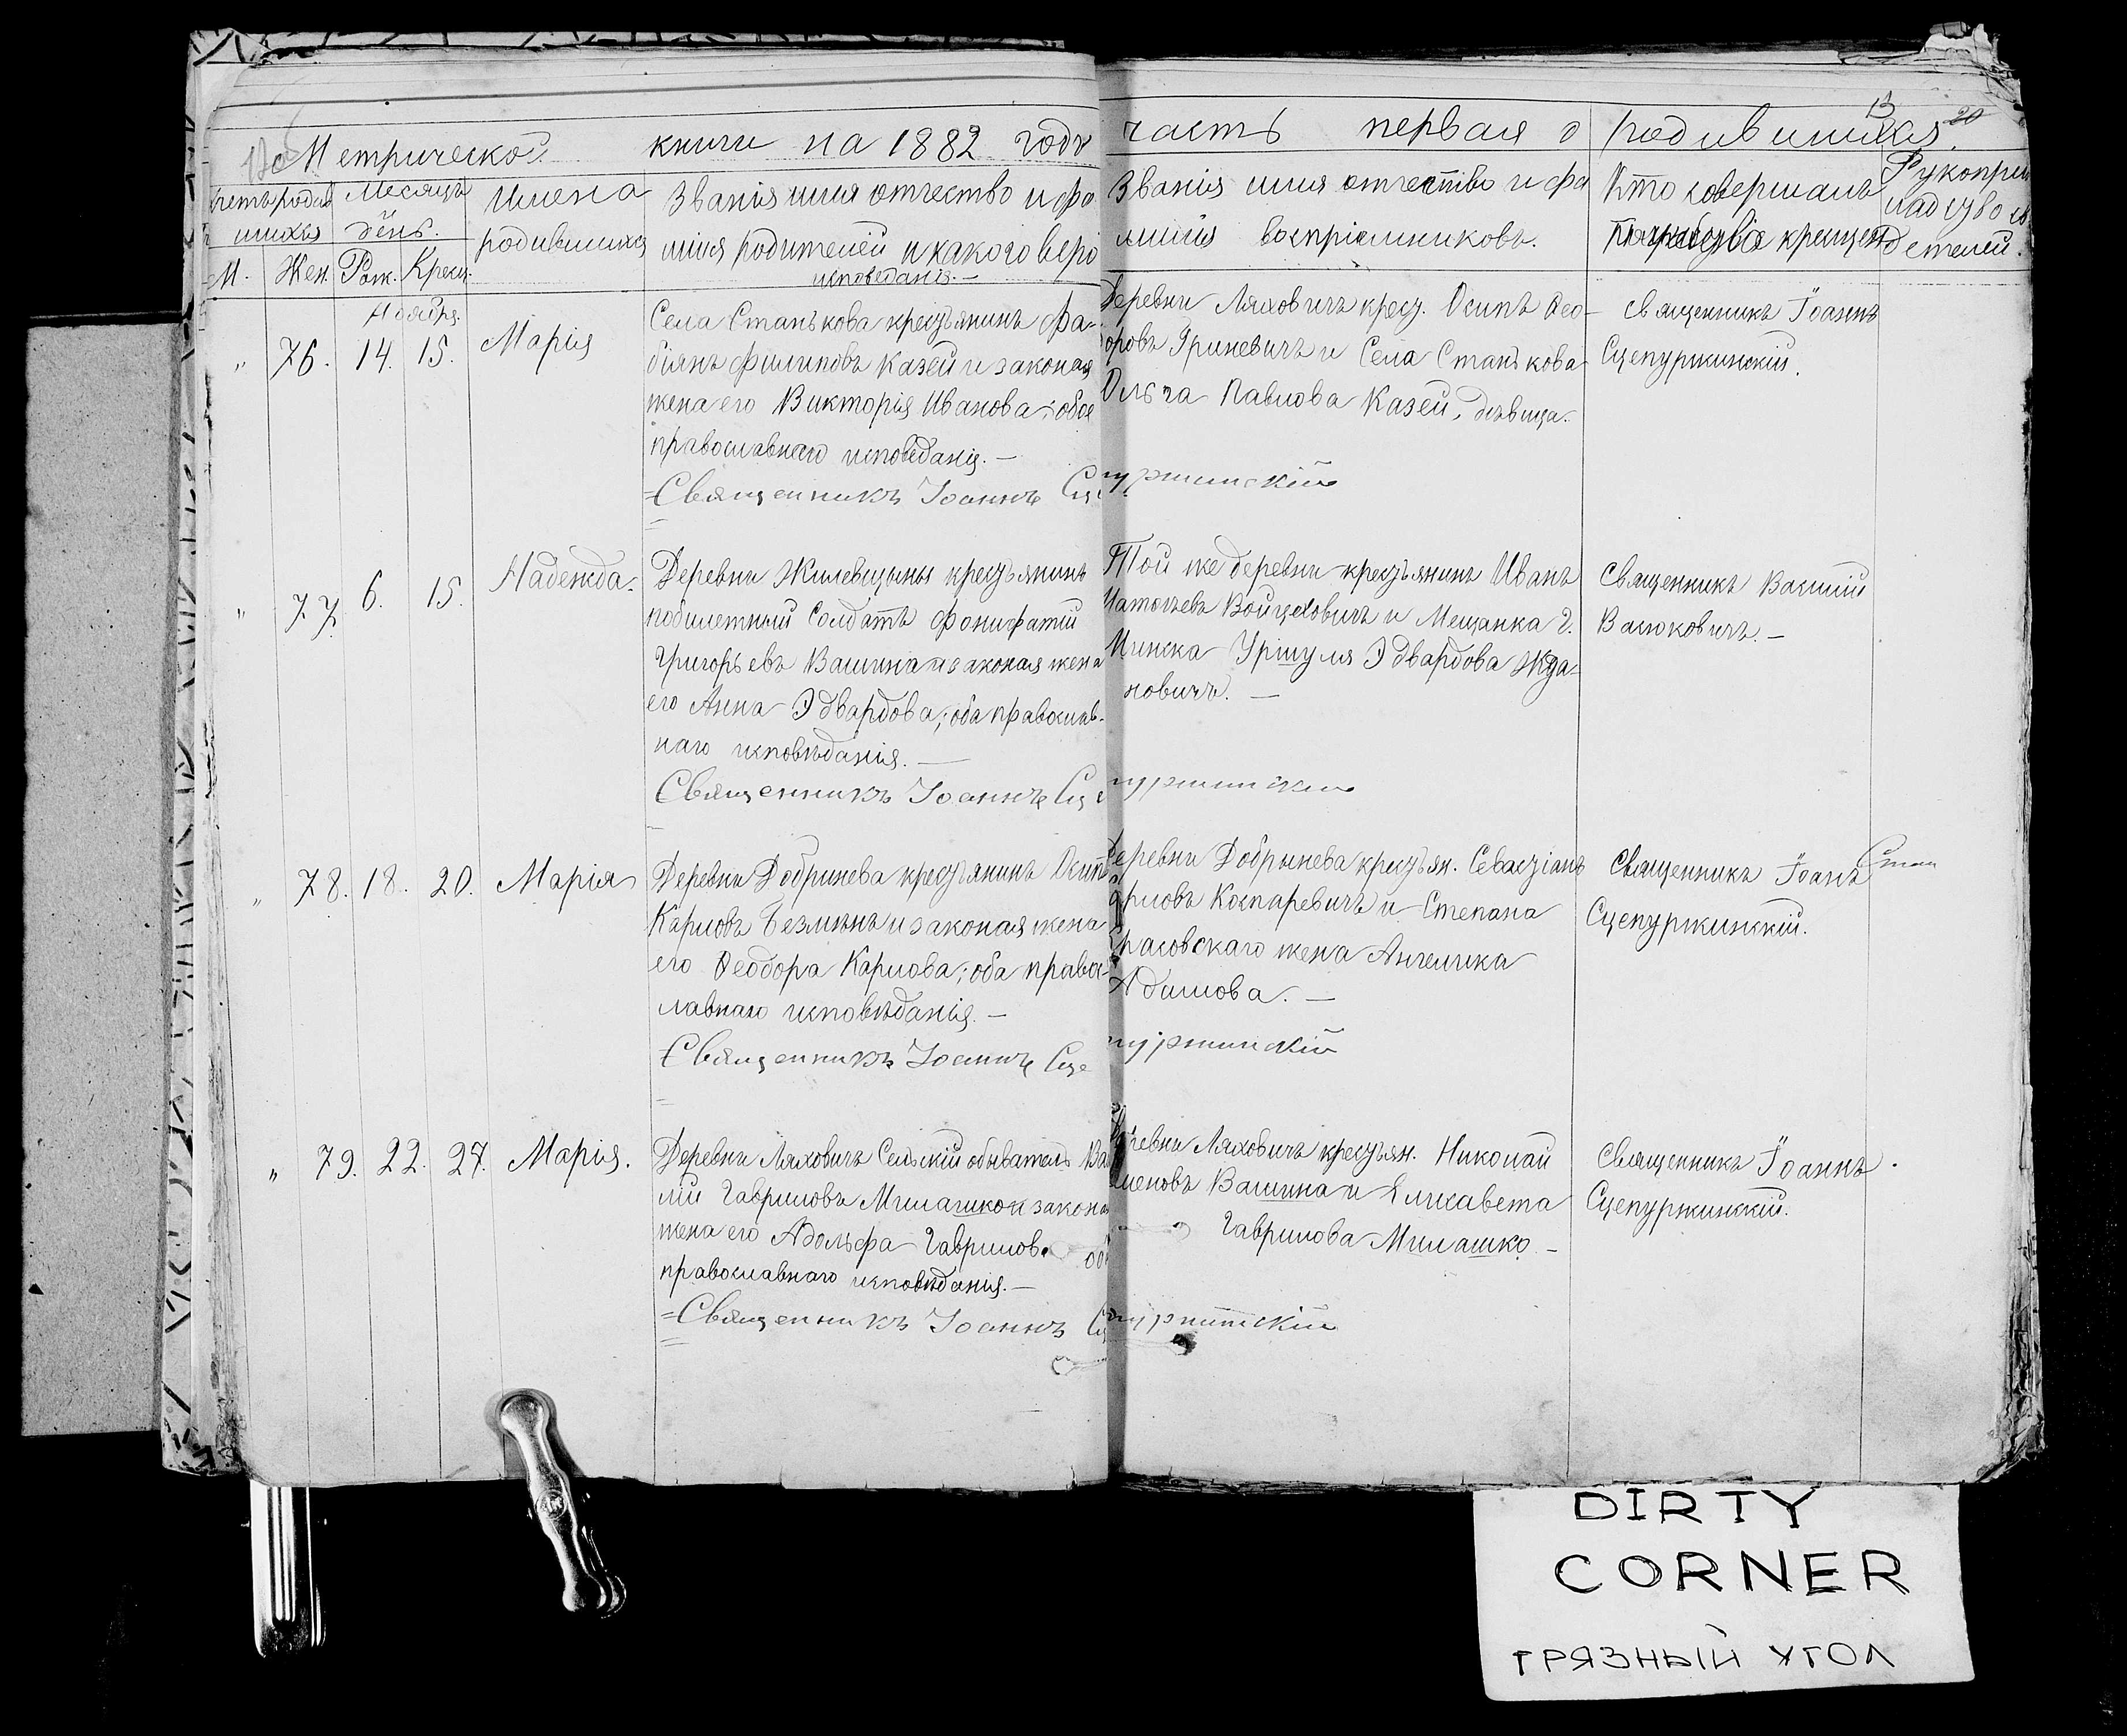 Метрической книги на 1882 годъ часть первая о родившихся.
13 20
Счетъ родив
шихся
Месяцъ
день.
Имена
родившихся
Званія имя отчество и фа
милія родителей и какого веро
исповеданія.—
Званія имя отчество и фа
милія воспріемниковъ.
Кто совершалъ
крещен
Рукопри
детелей.
М. Жен. Рож. Крещ.
Ноября.
" 76. 14. 15. Марія
Села Станькова крестьянинъ Фа-
біянъ Филиповъ Казей и законая
жена его Викторія Иванова; обое
православнаго исповеданія.—
=Священникъ Іоаннъ Сцепуржинскій
Деревни Ляховичъ крест. Осипъ Ѳео-
оровъ Гриневичъ и Села Станькова
Ольга Павлова Казей, дѣвица.
Священникъ Іоаннъ
Сцепуржинскій.
" 77. 6. 15. Надежда.
Деревни Жилевщины крестьянинъ
побилетный Солдатъ Фонифатій
Григорьевъ Вашина и законая жена
его Анна Эдвардова; оба православ-
наго исповѣданія.—
Священникъ Іоаннъ Сцепуржинскій
Той же деревни крестьянинъ Иванъ
Матвѣевъ Войцеховичъ и Мещанка г.
Минска Уршуля Эдвардова Жда-
новичъ.—
Священникъ Василій
Васюковичъ.—
" 78. 18. 20. Марія
Деревни Добринева крестьянинъ Осипъ
Карловъ Безмѣнъ и законая жена
его Ѳеодора Карлова; оба правос-
лавнаго исповѣданія.—
Священникъ Іоаннъ Сцепуржинскій
Деревни Добрынева крестьян. Севастіанъ
Карловъ Коспаревичъ и Степана
жена Ангелика
Адамова.—
Священникъ Іоанъ
Сцепуржинскій.
" 79. 22. 27. Марія.
Деревни Ляховичъ Сельскій обыватель Васи
лій Гавриловъ Милашко и законая
жена его Адольфа Гаврилова оба
православнаго исповѣданія.—
=Священникъ Іоаннъ Сцепуржинскій
Деревни Ляховичъ крестьян. Николай
Семеновъ Вашина и Елисавета
Гаврилова Милашко.—
Священникъ Іоаннъ
Сцепуржинскій.
DIRTY
CORNER
ГРЯЗНЫЙ УГОЛ